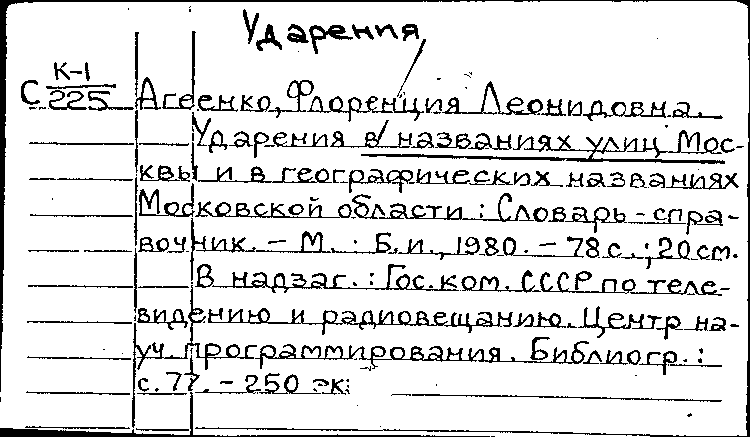 Ударения
К-1
С 225 Агеенко, Флоренция Леонидовна.
Ударения в названиях улиц Мос-
квы и в географических названиях
Московской области : Словарь-спра-
вочник. - М. : Б.и., 1980. - 78 с. ; 20 см.
В надзаг. : Гос. ком. СССР по теле-
видению и радиовещанию. Центр на-
уч. программирования. Библиогр. :
с. 77. - 250 эк.